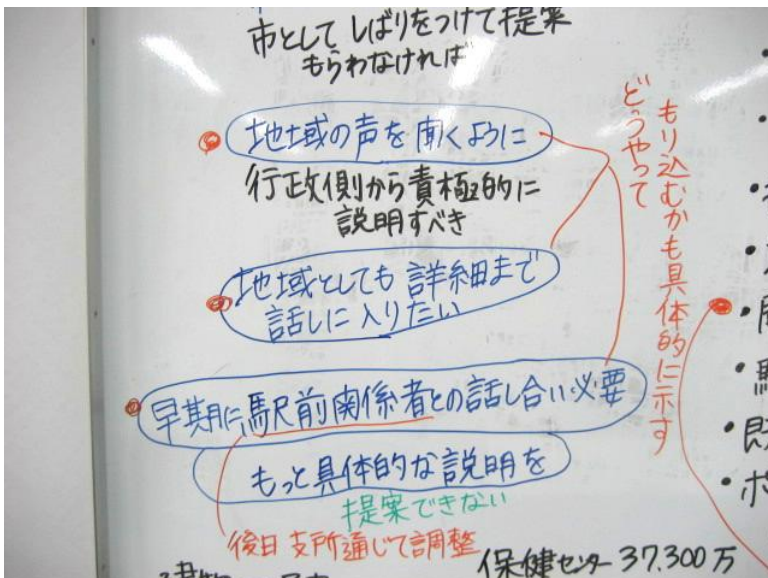 市として しばりをつけて提案
もらわなければ
地域の声を聞くように
行政側から責極的に
説明すべき
地域としても 詳細まで
話しに入りたい
早期に駅前関係者との話し合い必要
もっと具体的な説明を
提案できない
後日 支所通じて調整
保健センター 37.300万
どうやって
もり込むかも具体的に示す